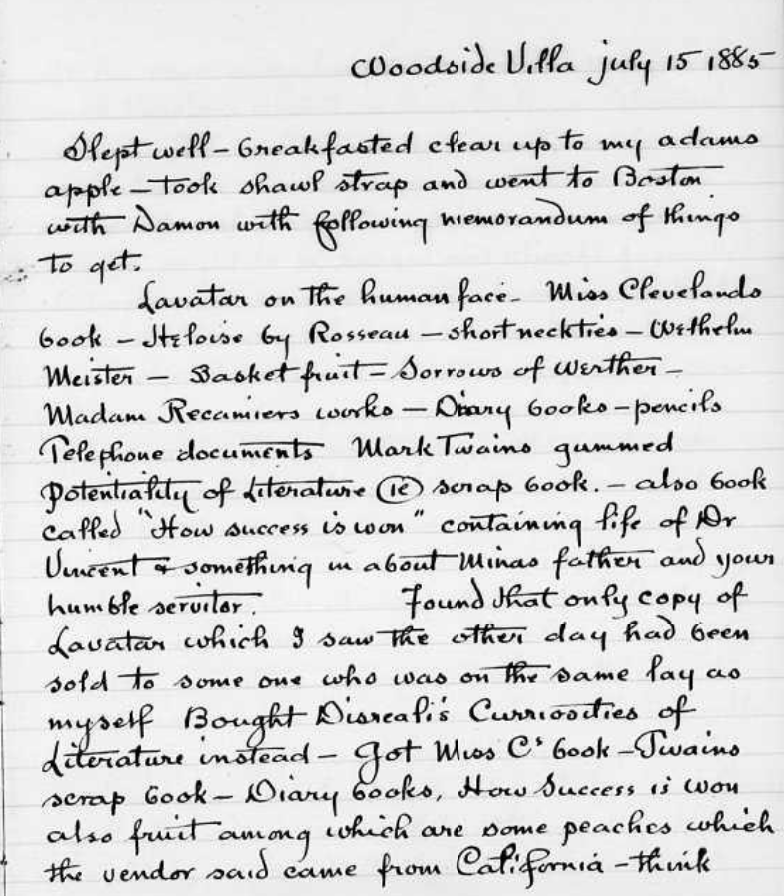 Woodside Villa july 15 1885
Slept well – breakfasted clear up to my adams
apple – took shawl strap and went to Boston
with Damon with following memorandum of things
to get.
Lavatar on the human face – Miss Clevelands
book – Heloise by Rosseau – short neckties – Wilhelm
Meister – Basket fruit – Sorrows of Werther –
Madam Recamiers works – Diary books – pencils
Telephone documents Mark Twains gummed
Potentiality of Literature (ie) scrap book. – also book
called "How success is won" containing life of Dr
Vincent & something in about Minas father and your
humble servitor. Found that only copy of
Lavatar which I saw the other day had been
sold to some one who was on the same lay as
myself Bought Disreali's Curriosities of
Literature instead – got Miss Cs book – Twains
scrap book – Diary books, How Success is won
also fruit among which are some peaches which
the vendor said came from California – think